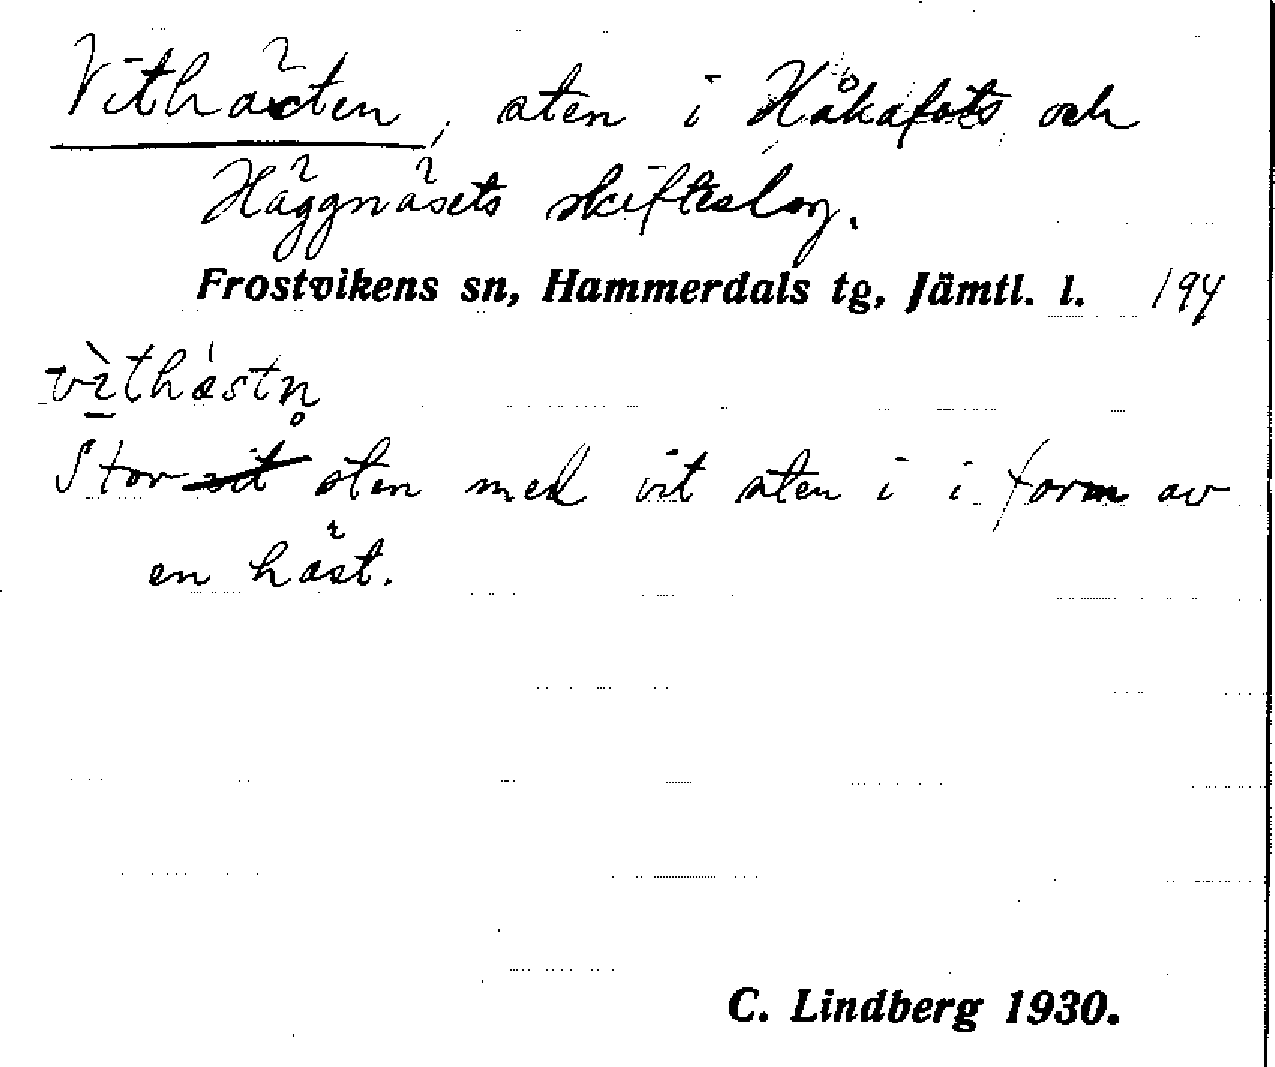 Vithästen, sten i Håkafots och
Häggnäsets skifteslag.
Frostvikens sn, Hammerdals tg, Jämtl. l. 194
vìthástn̥
Stor vit sten med vit sten i i form av
en häst.
C. Lindberg 1930.